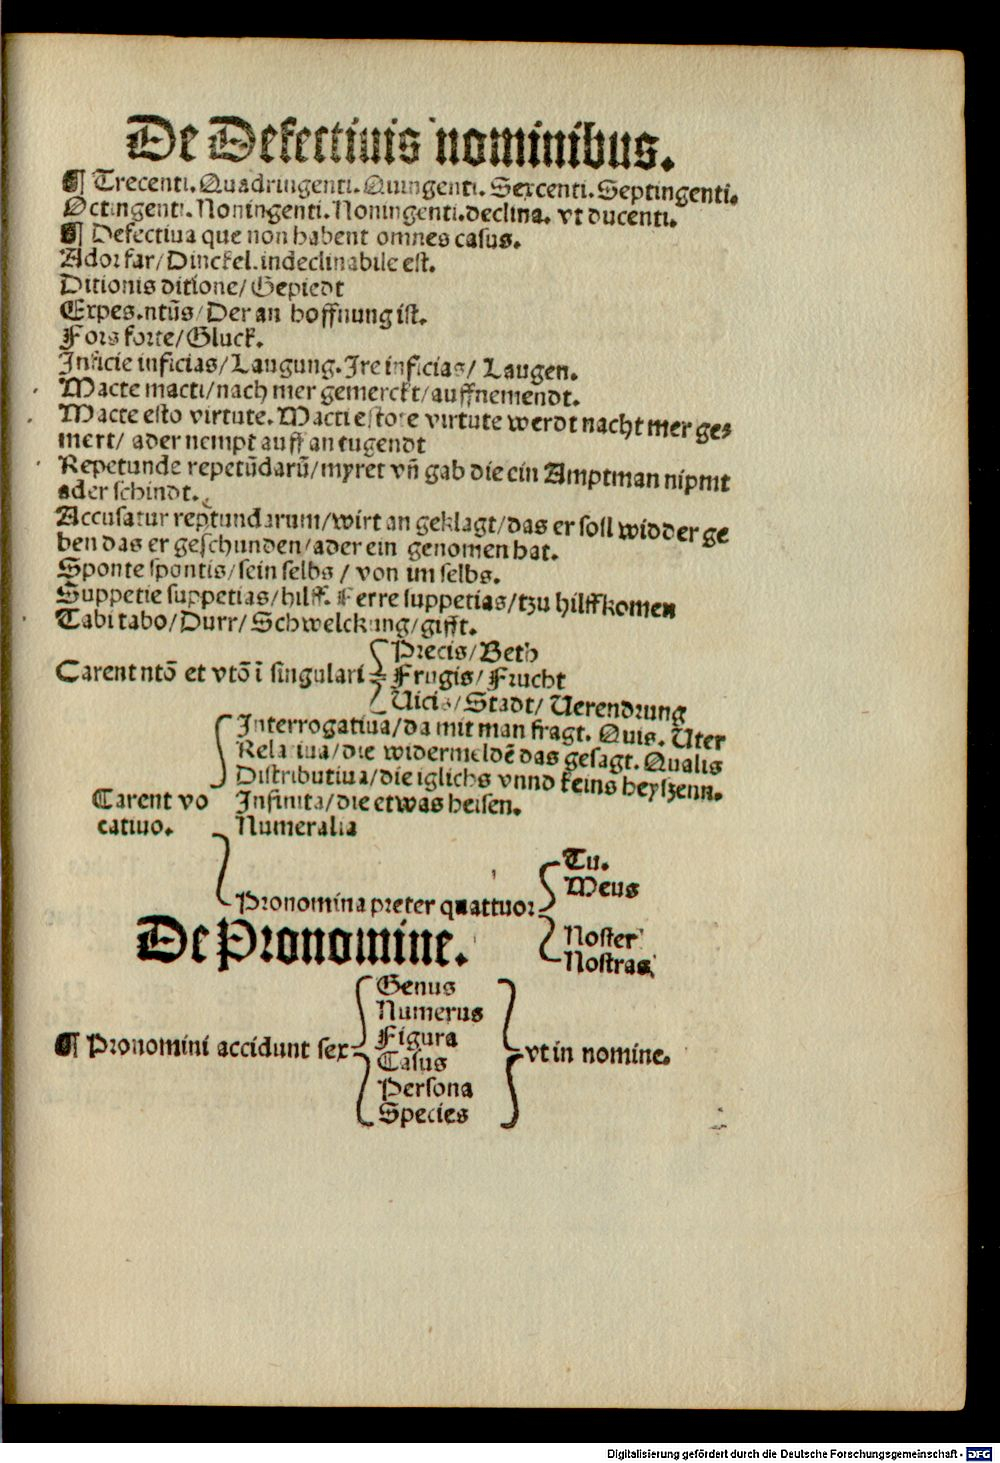 De Defectiuis nominibus.
¶ Trecenti. Quadringenti. Quingenti. Sexcenti. Septingenti.
Octingenti. Noningenti. Noningenti. declina. vt ducenti.
¶ Defectiua que non habent omnes casus.
Ador far/ Dinckel. indeclinabile est.
Ditionis ditione/ Gepiedt
Expes. ntũs/ Der an hoffnung ist.
Fors forte/ Gluck.
Inficie inficias/ Laugung. Ire inficias/ Laugen.
Macte macti/ nach mer gemerckt/ auffnemendt.
Macte esto virtute. Macti estote virtute werdt nacht mer ge⸗
mert/ ader nempt auff an tugendt
Repetunde repetũdarũ/ myret vñ gab die ein Amptman nipmt
ader schindt.
Accusatur reptundarum/ wirt an geklagt/ das er soll widder ge
ben das er geschunden/ ader ein genomen hat.
Sponte spontis/ sein selbs / von im selbs.
Suppetie suppetias/ hilff. Ferre suppetias/ tzu hilff komen
Tabi tabo/ Durr/ Schwelckung/ gifft.
Precis/ Beth
Carent ntõ et vtõ ĩ singulari Frugis/ Frucht
Uicis/ Stadt/ Uerendrung
Interrogatiua/ da mit man fragt. Quis. Uter
Relatiua/ die widermeldẽ das gesagt. Qualis
Distributiua/ die iglichs vnnd keins heyszenn.
Carent vo Infinita/ die etwas heisen.
catiuo. Numeralia
Tu.
Meus
Pronomina preter quattuor
Noster
Nostras
De Pronomine.
Genus
Numerus
Figura
¶ Pronomini accidunt sex vt in nomine.
Casus
Persona
Species
Digitalisierung gefördert durch die Deutsche Forschungsgemeinschaft - DFG